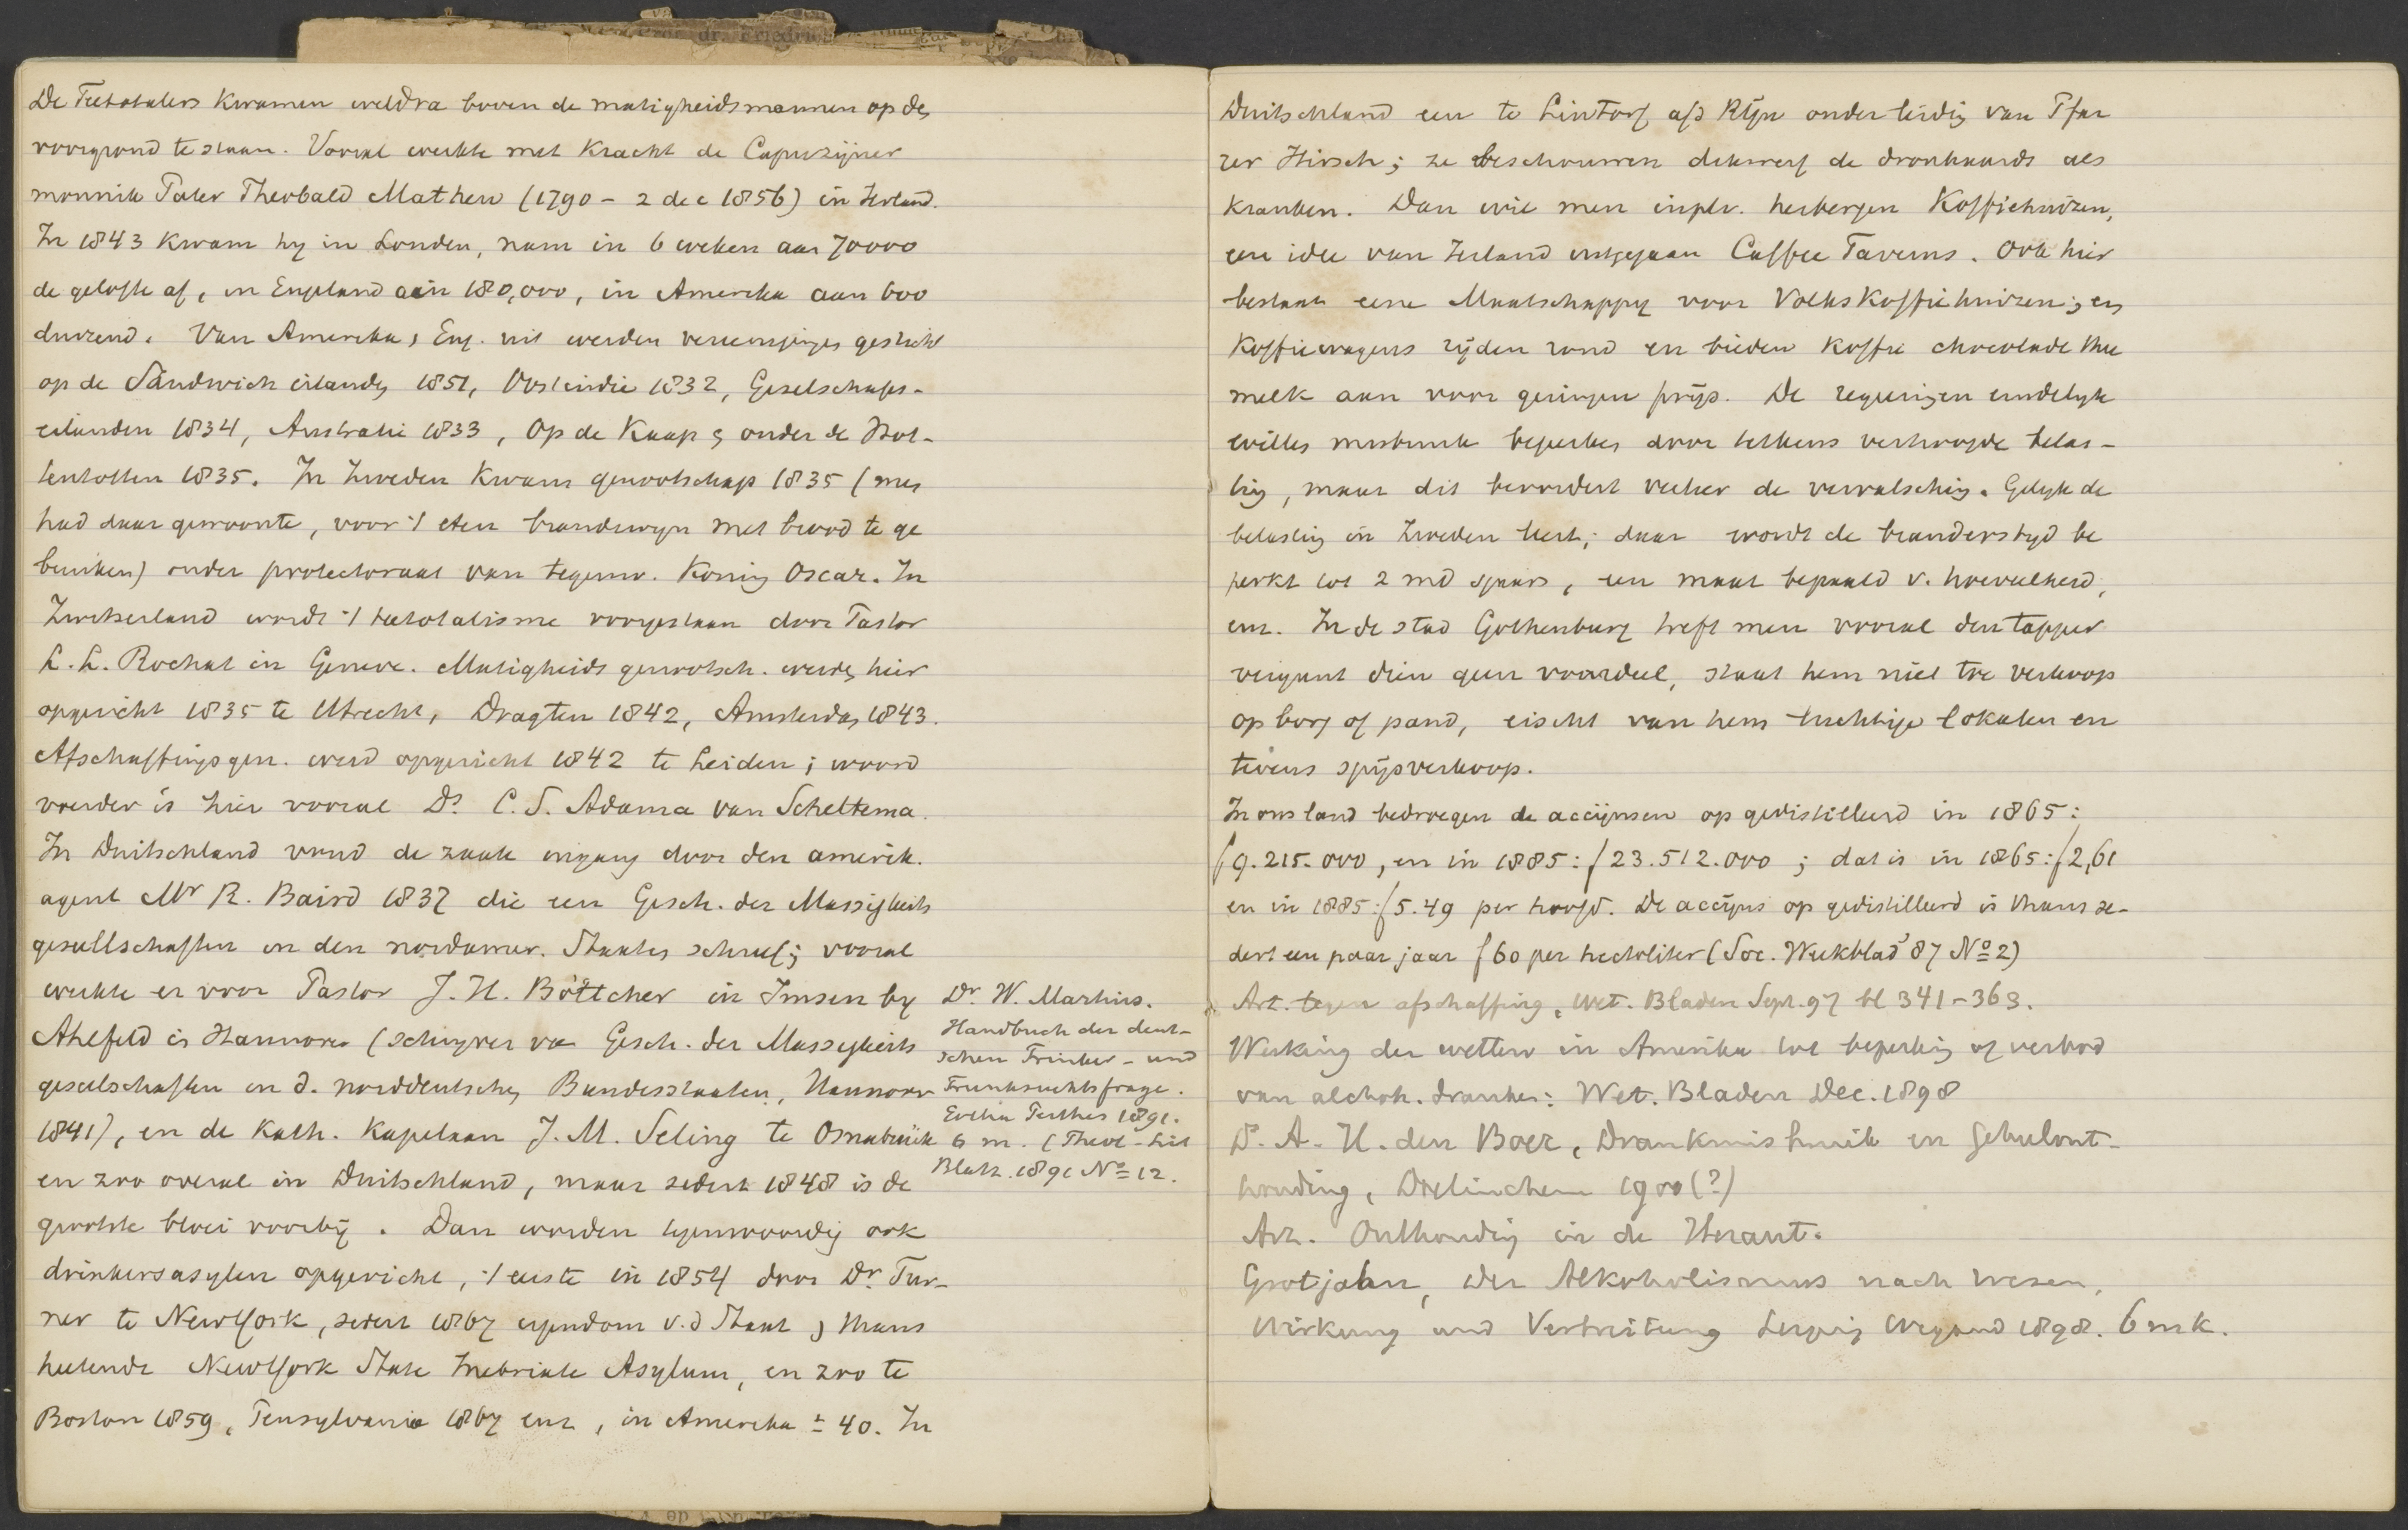 De Teetotalers kwamen weldra boven de matigheidsmannen op de
voorgrond te staan. Vooral werkte met kracht de Capuzijner
monnik Pater Theobald Mathew (1790 - 2 dec 1856) in Ierland.
In 1843 kwam hy in Londen, nam in 6 weken aan 70000
de gelofte af, in Engeland aan 180,000, in Amerika aan 600
duizend. Van Amerika, Eng. uit werden vereenigingen gesticht
op de Sandwich eilanden 1851, Oostindie 1832, Geselschaps-
eilanden 1834, Australie 1833, Op de Kaap & onder de Hot-
tentotten 1835. In Zweden kwam genootschap 1835 (men
had daar gewoonte, voor 't eten brandewyn met brood te ge
bruiken) onder protectoraat van tegenw. Koning Oscar. In
Zwitserland wordt 't teetotalisme voorgestaan door Pastor
L. L. Rochat in Geneve. Matigheids genootsch. werden hier
opgericht 1835 te Utrecht, Dragten 1842, Amsterdam 1843.
Afschaffingsgen. werd opgericht 1842 te Leiden; woord
voerder is hier vooral Ds. C. S. Adama van Scheltema.
In Duitschland vond de zaak ingang door den amerik.
agent Mr R. Baird 1837 die een Gesch. der Massigkeits
gesellschaften in den nordamer. Staaten schreef; vooral
werkte er voor Pastor J. H. Böttcher in Imsen by
Ahlfeld in Hannover (schryver van Gesch. der Massigkeits
geselschaften in d. norddeutschen Bundesstaaten, Hannover
1841), en de Kath. Kapelaan J. M. Seling te Osnabrück
en zoo overal in Duitschland, maar sedert 1848 is de
grootste bloei voorbij. Dan worden tegenwoordig ook
drinkersasylen opgericht, 't eerste in 1854 door Dr. Tur-
ner te NewYork, sedert 1867 eigendom v. d Staat & thans
heetende NewYork State Inebriate Asylum, en zoo te
Boston 1859, Pensylvanie 1867 enz, in Amerika ± 40. In
Dr. W. Martius.
Handbuch der deut-
schen Trinker- und
Trunksuchtsfrage.
Perthes 1891.
6 m. (Theol-Lit
Blatt. 1891 No 12.
Duitschland een te Lintorf a/d Rijn onder leidig van Pfar
rer Hirsch; ze beschouwen dikwerf de dronkaards als
kranken. Dan wil men inplv. herbergen Koffiehuizen,
een idee van Ierland uitgegaan Caffee Taverns. Ook hier
bestaat eene Maatschappy voor Volkskoffiehuizen; en
Koffiewagens rijden rond en bieden koffie chocolade thee
melk aan voor geringen prijs. De regeeringen eindelyk
willen misbruik beperken door telkens verhoogde belas-
ting, maar dit bevordert veeleer de vervalsching. Gelyk de
belasting in Zweden leert; daar wordt de branderstyd be
perkt tot 2 md sjaars, een maat bepaald v. hoeveelheid,
enz. In de stad Gothenburg treft men vooral den tapper
vergunt dien geen voordeel, staat hem niet toe verkoop
op borg of pand, eischt van hem luchtige lokalen en
tevens spijsverkoop.
In ons land bedroegen de accijnsen op gedistilleerd in 1865:
f 9.215.000, en in 1885: f 23.512.000; dat is in 1865: f 2,61
en in 1885: f 5.49 per hoofd. De accijns op gedistilleerd is thans se-
dert een paar jaar f 60 per hectoliter (Soc. Weekblad '87 No 2)
Art. tegen afschaffing, Wet. Bladen Sept. 97 bl 341-363.
Werking der wetten in Amerika tot beperking of verbod
van alcohol. dranken: Wet. Bladen Dec. 1898
Ds. A. H. den Boer, Drankmisbruik en Geheelont-
houding, 1900 (?)
Art. Onthouding in de Heraut.
Grotjahn, Der Alkoholismus nach Wesen,
Wirkung und Verbreitung Leipzig Wigand 1898. 6 mk.